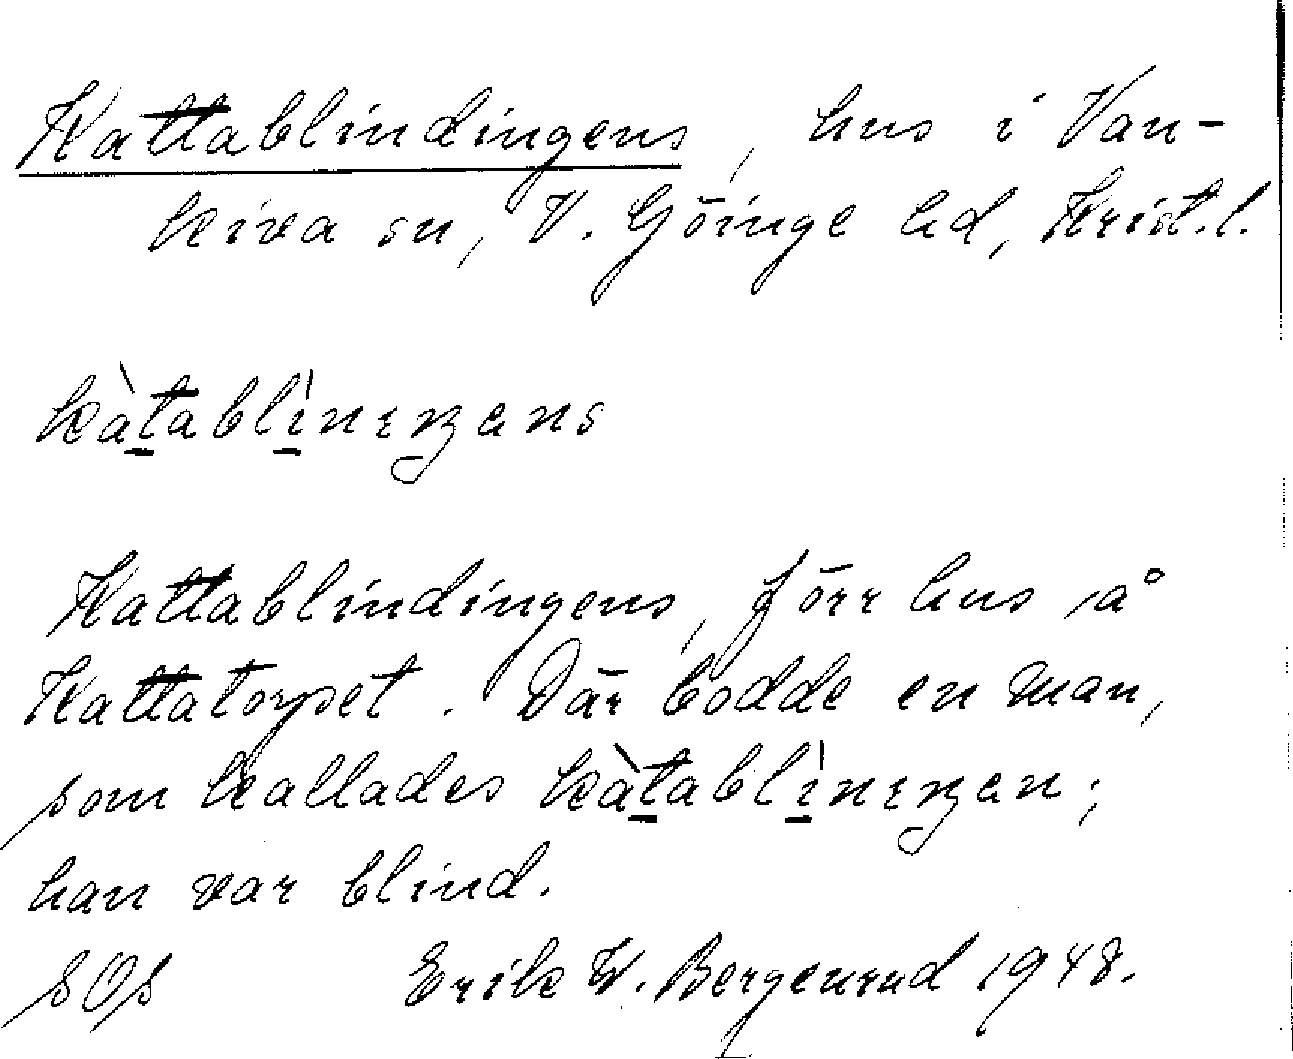 Kattablindingens, hus i Van-
kiva sn, V. Göinge hd, Krist.l.
kàtablìnɪŋens
Kattablindingens, förr hus på
Kattatorpet. Där bodde en man,
som kallades kàtablìnɪŋen;
han var blind.
SOf Erik W. Bergenrud 1948.